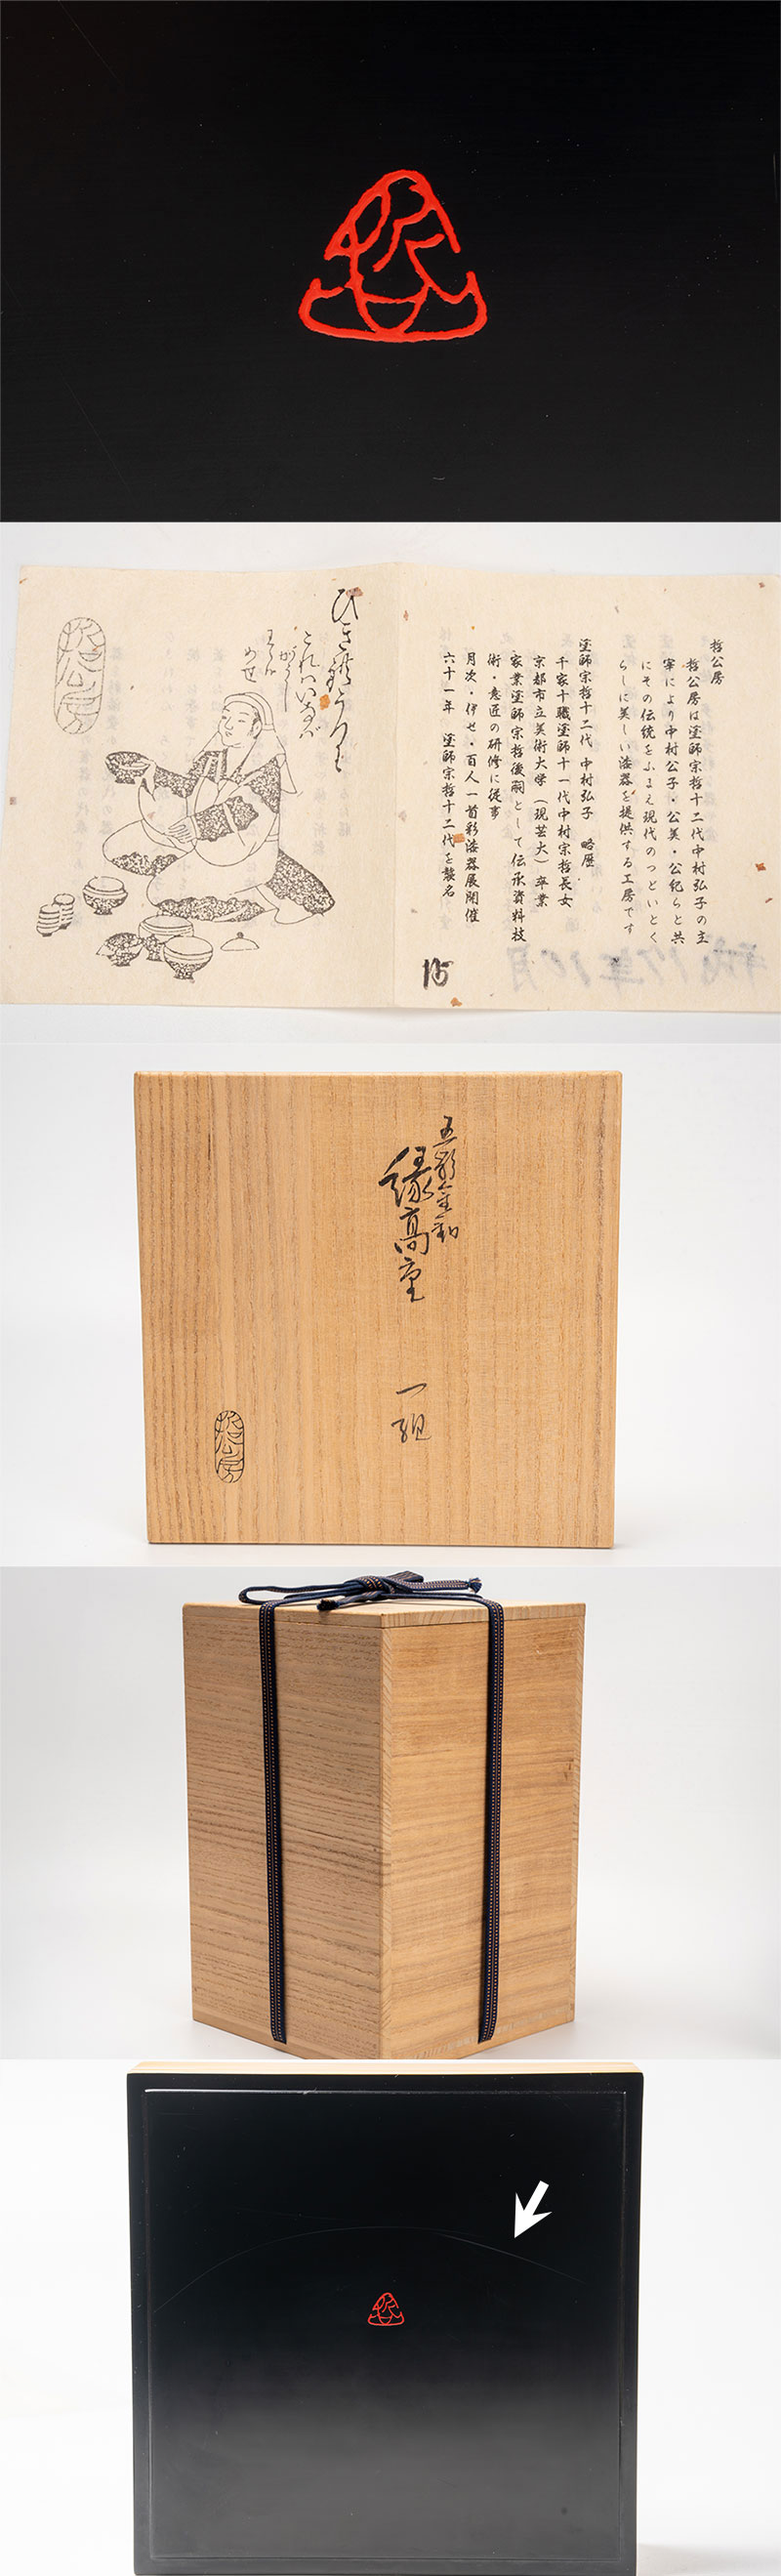 哲公房
哲公房は塗師宗哲十二代中村弘子の主
宰により中村公子・公美・公紀らと共
にその伝統をふまえ現代のつどいとく
らしに美しい漆器を提供する工房です
塗師宗哲十二代 中村弘子 略歴
千家十職塗師十一代中村宗哲長女
京都市立美術大学（現芸大）卒業
家業塗師宗哲後嗣として伝承資料技
術・意匠の研修に従事
月次・伊せ・百人一首彩漆器展開催
六十一年 塗師宗哲十二代を襲名
15
哲公房
縁高重
一組
哲公房